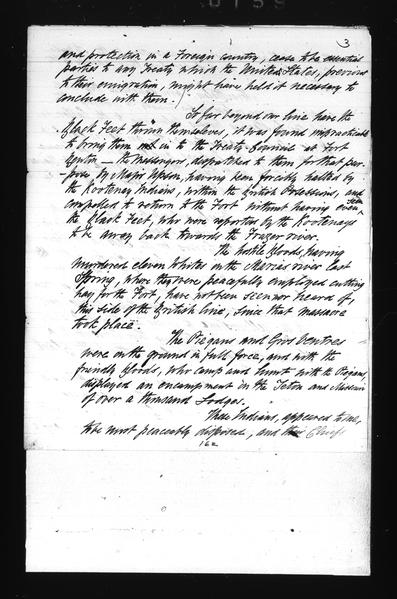 3
and protection in a Foreign country, cease to be essential
parties to any Treaty which the United States, previous
to their emigration, might have held it necessary to
conclude with them.
So far beyond our line have the
Black Feet thrown themselves, it was found impracticable
to bring them in to the Treaty Council at Fort
Benton — the Messenger, dispatched to them for that pur-
-pose by Major Upson, having been forcibly halted by
the Kootenay Indians, within the British Possessions, and
compelled to return to the Fort without having even seen
the Black Feet, who were reported by the Kootenays
to be away back towards the Frazer river.
The hostile Bloods, having
murdered eleven Whites on the Marias river last
Spring, where they were peacefully employed cutting
hay for the Fort, have not been seen nor heard of,
this side of the British line, since that massacre
took place.
The Piegans and Gros Ventres
were on the ground in full force, and with the
friendly Bloods, who camp and hunt with the Piegans,
displayed an encampment in the Teton and Missouri
of over a thousand Lodges.
These Indians, appeared to me,
to be most peaceably disposed, and their Chiefs
162